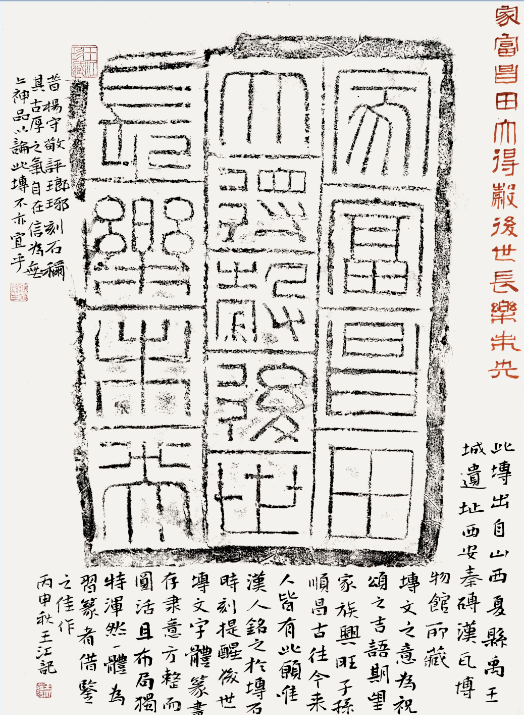 家富昌田大得穀後世長樂未央
家富昌田
大得穀後世
長樂未央
昔楊守敬評瑯琊刻石稱
具古厚之氣自在信為無
上神品以論此塼不亦宜乎
此塼出自山西夏縣禹王
城遺址西安秦磚漢瓦博
物館所藏
塼文之意為祝
頌之吉語期望
家族興旺子孫
順昌古往今來
人皆有此願惟
漢人銘之於塼石
時刻提醒後世
塼文字體篆書
存隶意方整而
圓活且布局獨
特渾然一體為
習篆者借鑒
之佳作
丙申秋王江記